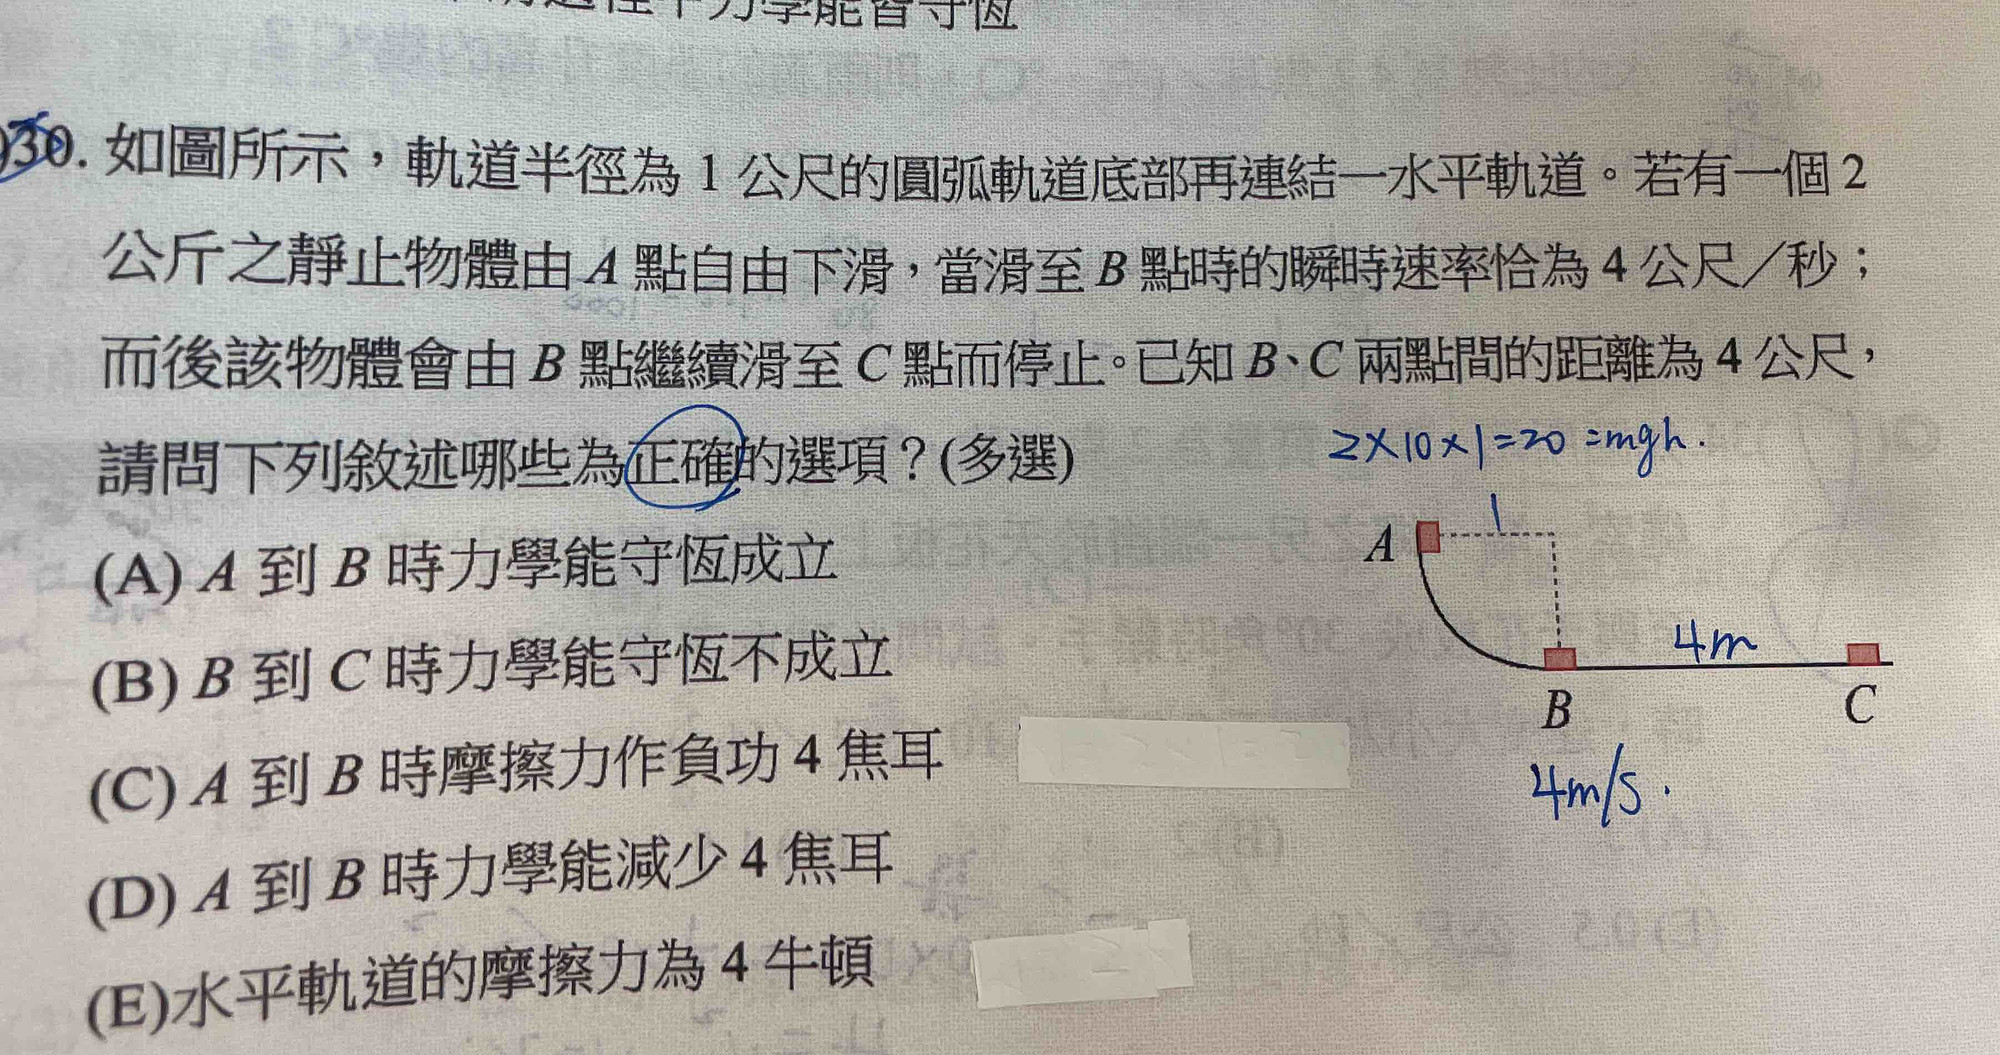 力學能皆守恆
30. 如圖所示，軌道半徑為 1 公尺的圓弧軌道底部再連結一水平軌道。若有一個 2
公斤之靜止物體由 A 點自由下滑，當滑至 B 點時的瞬時速率恰為 4 公尺／秒；
而後該物體會由 B 點繼續滑至 C 點而停止。已知 B、C 兩點間的距離為 4 公尺，
請問下列敘述哪些為正確的選項？(多選)
2×10×1=20 =mgh.
(A) A 到 B 時力學能守恆成立
(B) B 到 C 時力學能守恆不成立
(C) A 到 B 時摩擦力作負功 4 焦耳
(D) A 到 B 時力學能減少 4 焦耳
(E)水平軌道的摩擦力為 4 牛頓
1
A
4m
B
C
4m/s.